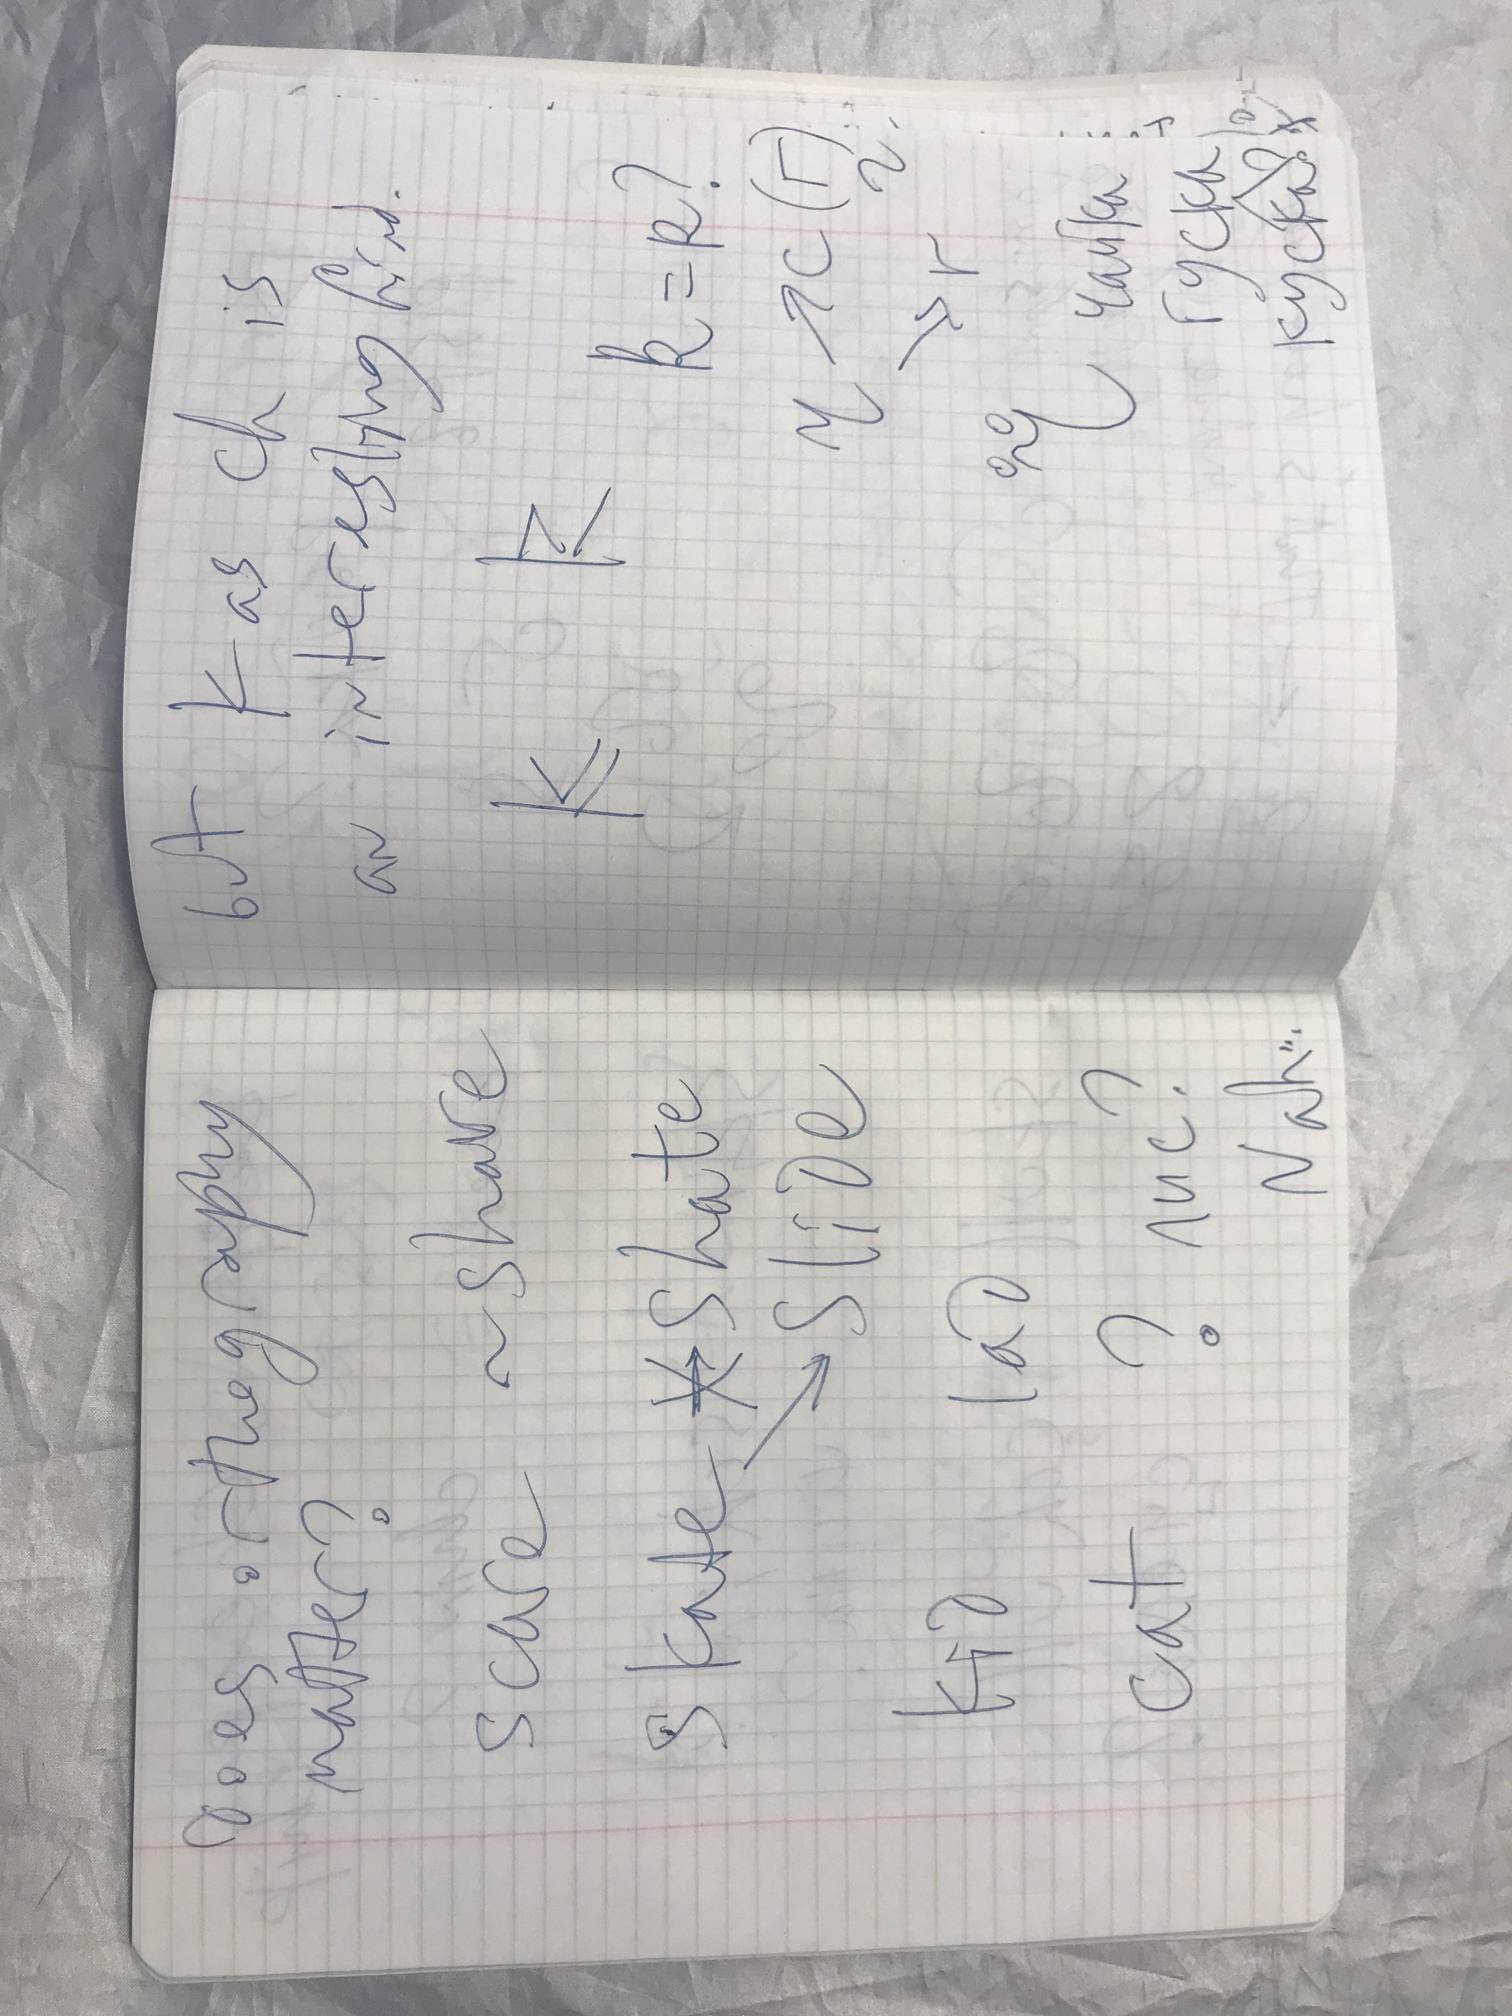 Does orthography
matter?
scare ~ share
skate → shate
→ slide
kid lad
cat ? лис?
Nah..
but k as ch is
an interesting find.
K K
k = k?
ч → c (г)
→ r
чайка
гуска
куска?